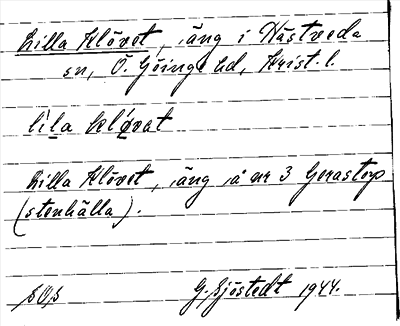 Lilla Klövet, äng i Hästveda
sn, Ö. Göinge hd, Krist. l.
lila klövat
Lilla Klövet, äng å nr 3 Gorastorp
(stenhälla).
SOS G. Sjöstedt 1944.